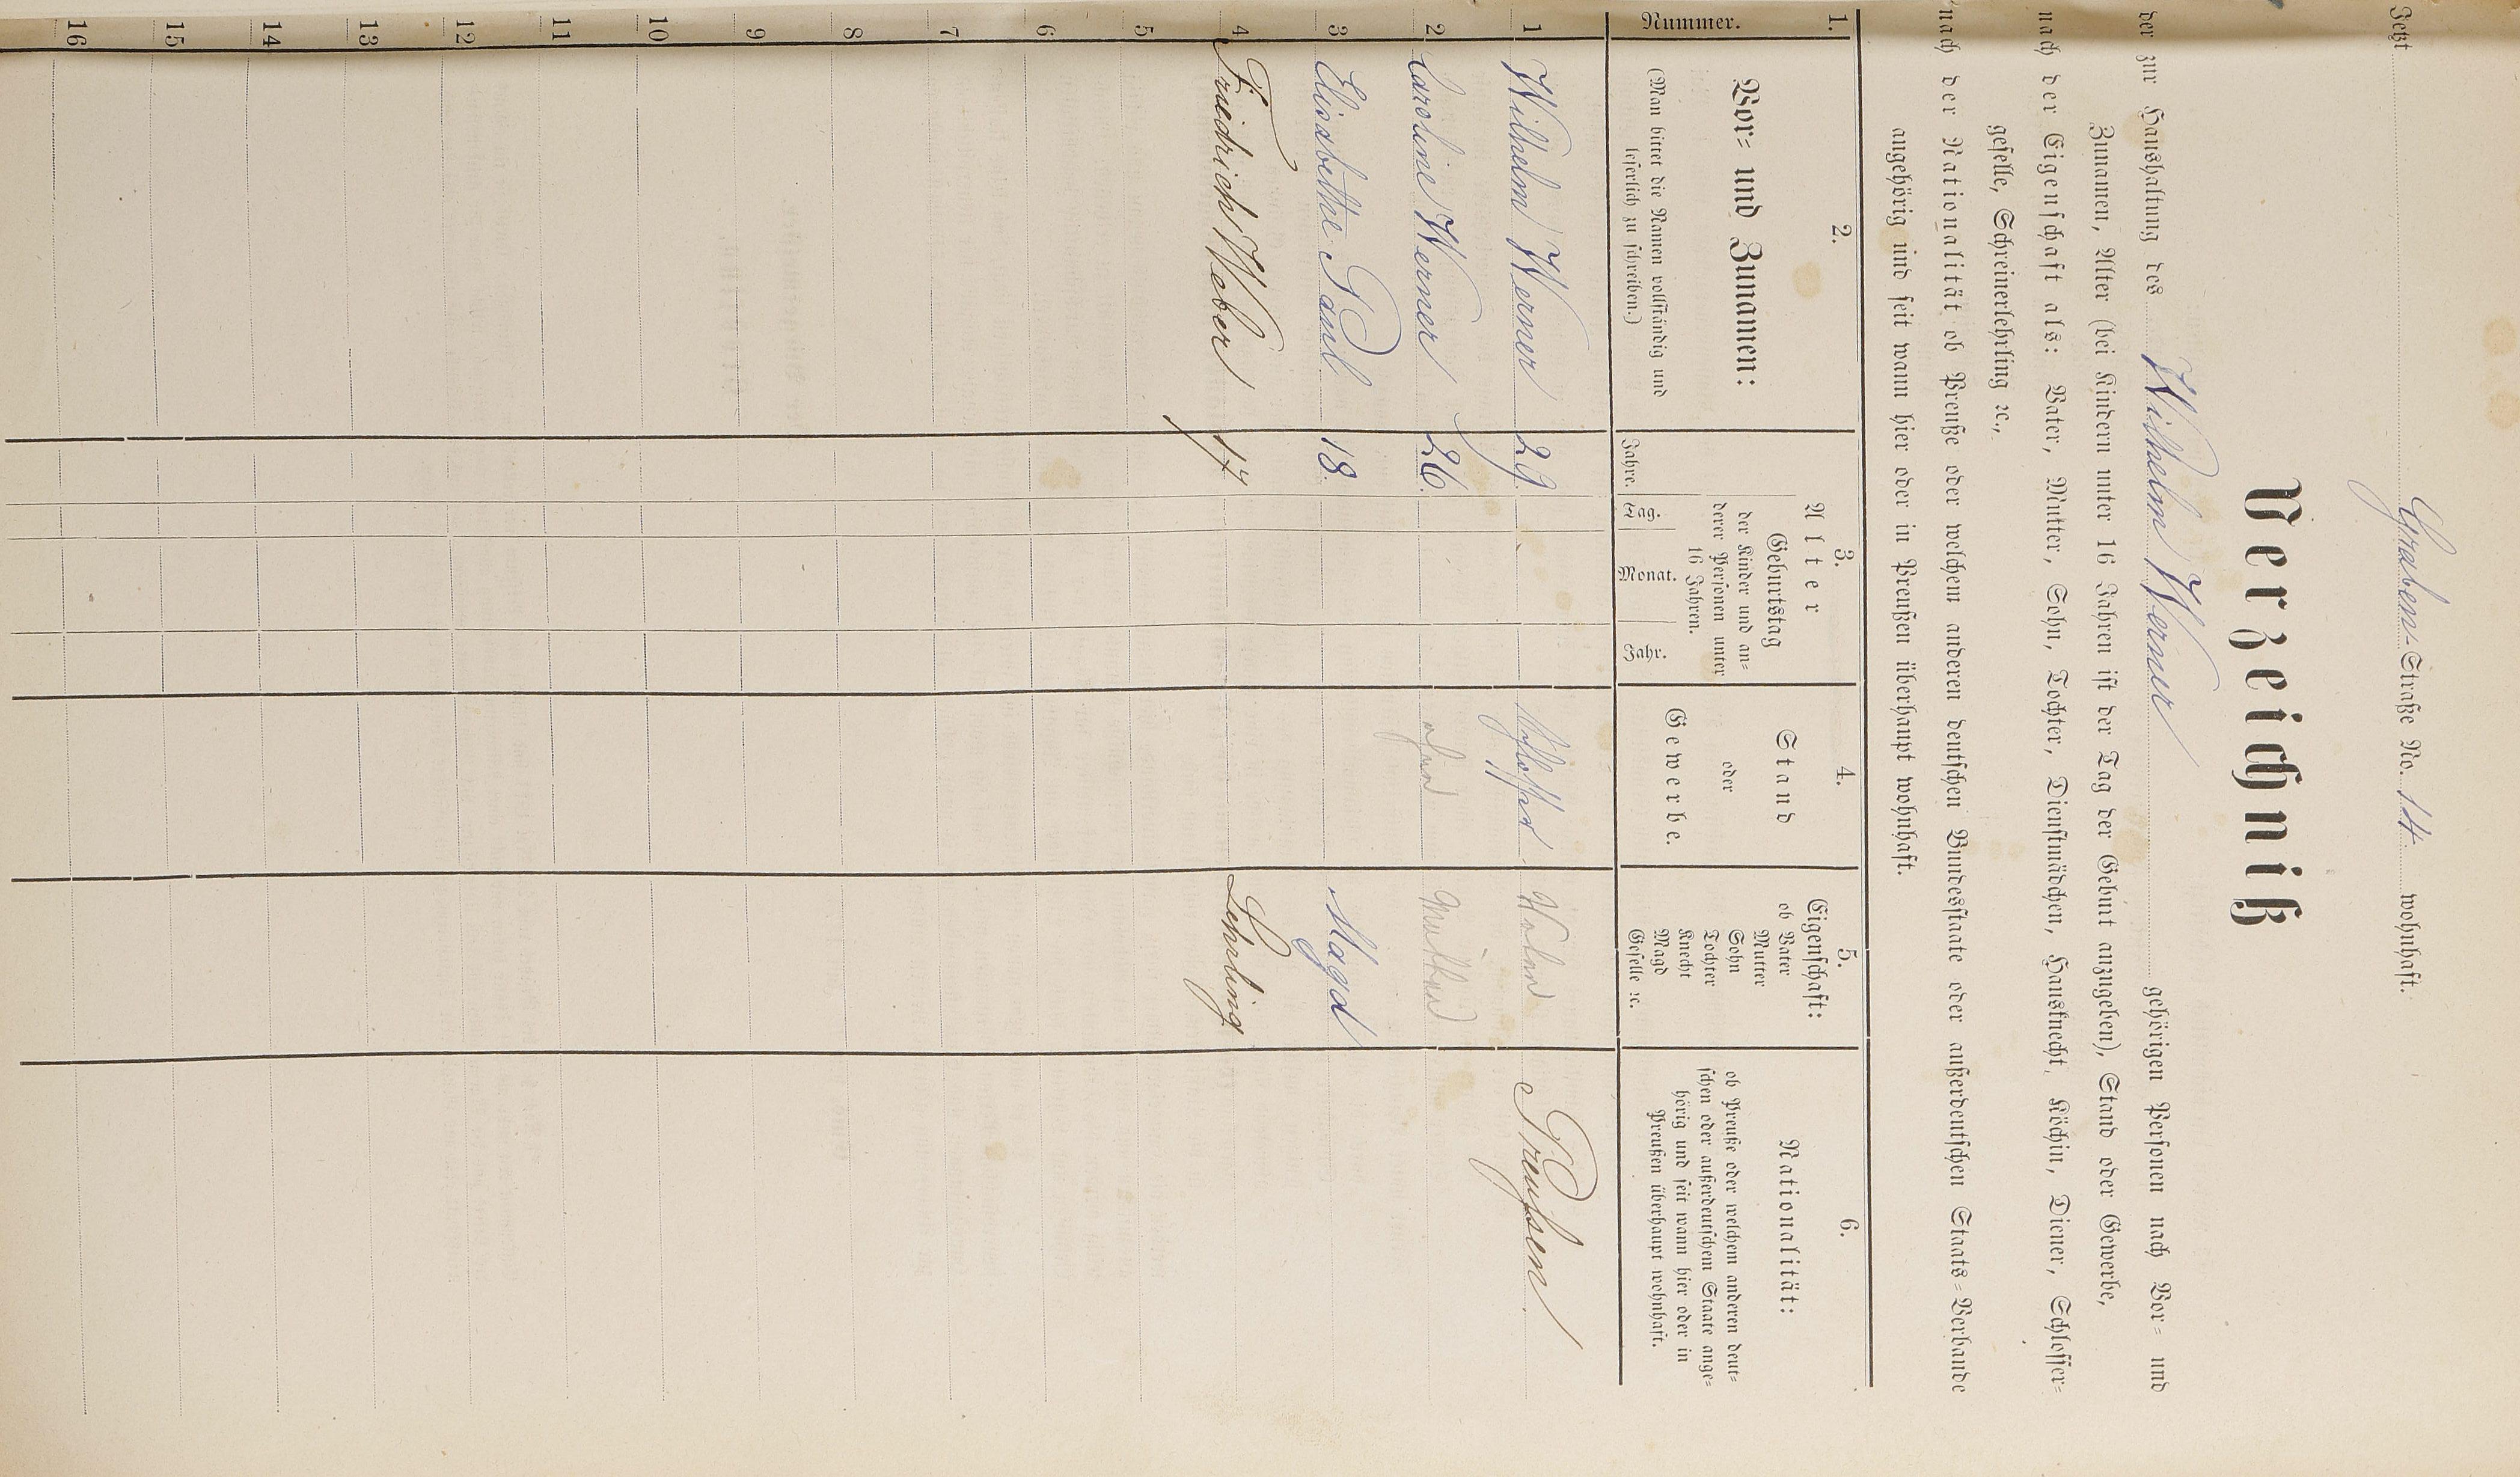 Jetzt Graben-Straße No. 14 wohnhaft.
Verzeichniß
der zur Haushaltung des Wilhelm Werner gehörigen Personen nach Vor- und
Zunamen, Alter (bei Kindern unter 16 Jahren ist der Tag der Geburt anzugeben), Stand oder Gewerbe,
nach der Eigenschaft als: Vater, Mutter, Sohn, Tochter, Dienstmädchen, Hausknecht, Köchin, Diener, Schlosser-
geselle, Schreinerlehrling ꝛc.,
nach der Nationalität ob Preuße oder welchem anderen deutschen Bundesstaate oder außerdeutschen Staats-Verbande
angehörig und seit wann hier oder in Preußen überhaupt wohnhaft.
1. 2. 3. 4. 5. 6.
Nummer.
Vor- und Zunamen:
(Man bittet die Namen vollständig und
leserlich zu schreiben.)
Alter
Jahre.
Geburtstag
der Kinder und an-
derer Personen unter
16 Jahren.
Tag. Monat. Jahr.
Stand
oder
Gewerbe.
Eigenschaft:
ob Vater
Mutter
Sohn
Tochter
Knecht
Magd
Geselle ꝛc.
Nationalität:
ob Preuße oder welchem anderen deut-
schen oder außerdeutschem Staate ange-
hörig und seit wann hier oder in
Preußen überhaupt wohnhaft.
1 Wilhelm Werner 29 Schlosser Vater Preußen
2 Caroline Werner 26 ohne Mutter
3 Elisabethe 18. Magd
4 Friedrich Weber 17 Lehrling
5
6
7
8
9
10
11
12
13
14
15
16